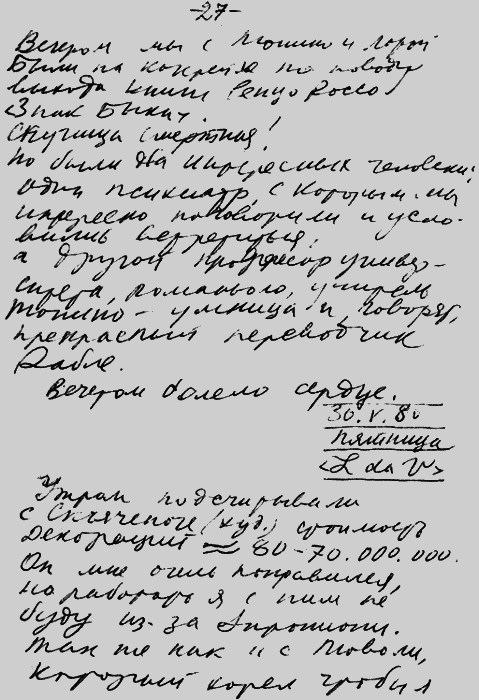 -27-
Вечером мы с Тонино и Лорой
были на конгрессе по поводу
выхода книги Ренцо Россо
"Знак Быка".
Скучища смертная!
Но были два интересных человека:
один психиатр, с которым мы
интересно поговорили и усло-
вились встретиться,
а другой профессор универ-
ситета, романского, учитель
Тонино - умница и, говорят,
прекрасный переводчик
Рабле.
Вечером болело сердце.
30.V.80
пятница
<L da V>
Утром подсчитывали
с (худ.) стоимость
декораций ≈ 60-70.000.000.
Он мне очень понравился,
но работать я с ним не
буду из-за
Так же как и с
который хотел